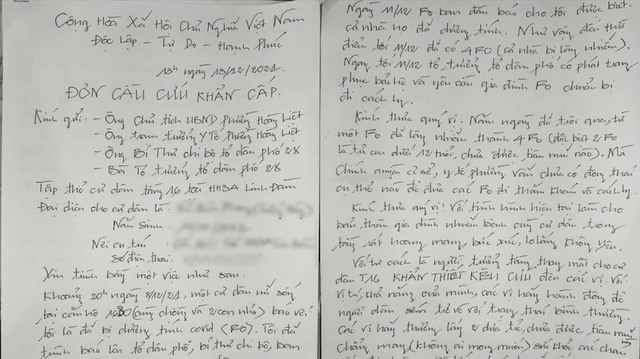 Cộng Hòa Xã Hội Chủ Nghĩa Việt Nam
Độc Lập - Tự Do - Hạnh Phúc
13h ngày 13/12/2021.
ĐƠN CẦU CỨU KHẨN CẤP.
Kính gửi: - Ông Chủ tịch UBND phường Hoàng Liệt
- Ông trạm trưởng Y Tế phường Hoàng Liệt
- Ông Bí Thư chi bộ tổ dân phố 28
- Bà Tổ trưởng tổ dân phố 28
Tập thể cư dân tầng 16 tòa HH3A Linh Đàm
Đại diện cho cư dân là:
Năm Sinh:
Nơi cư trú:
Số điện thoại:
Xin trình bày một việc như sau:
Khoảng 20h ngày 8/12/21, một cư dân nữ sống
tại căn hộ (cùng chồng và 2 con nhỏ) báo với
tôi là đã bị dương tính covid (F0). Tôi đã
trình báo lên tổ dân phố, bí thư chi bộ, ban
Ngày 11/12 F0 ban đầu báo cho tôi được biết
cả nhà họ đã dương tính. Như vậy đến thời
điểm tối 11/12 đã có 4 F0 (cả nhà bị lây nhiễm).
Ngay tối 11/12 tổ trưởng tổ dân phố có phát trang
phục bảo hộ và yêu cầu gia đình F0 chuẩn bị
đi cách ly.
Kính thưa quý vị. Năm ngày đã trôi qua, từ
một F0 đã lây nhiễm thành 4 F0 (đặc biệt 2 F0
là trẻ em dưới 12 tuổi, chưa được tiêm mũi nào). Mà
Chính quyền cơ sở, y tế phường vẫn chưa có động thái
cụ thể nào để đưa các F0 đi thăm khám và cách ly.
Kính thưa quý vị! Với tình hình hiện tại làm cho
bản thân gia đình nhiễm bệnh cùng cư dân trong
tầng rất hoang mang, bức xúc, lo lắng không yên.
Với tư cách là người, trưởng tầng thay mặt cho cư
dân T16 KHẨN THIẾT KÊU CỨU đến các vị. Với
vị trí, khả năng của mình, các vị hãy hành động để
người dân sớm trở về với trạng thái bình thường.
Các vị hãy thương lấy 2 đứa trẻ, chưa được tiêm mũi
chẳng may (không ai mong muốn) sức khỏe các cháu